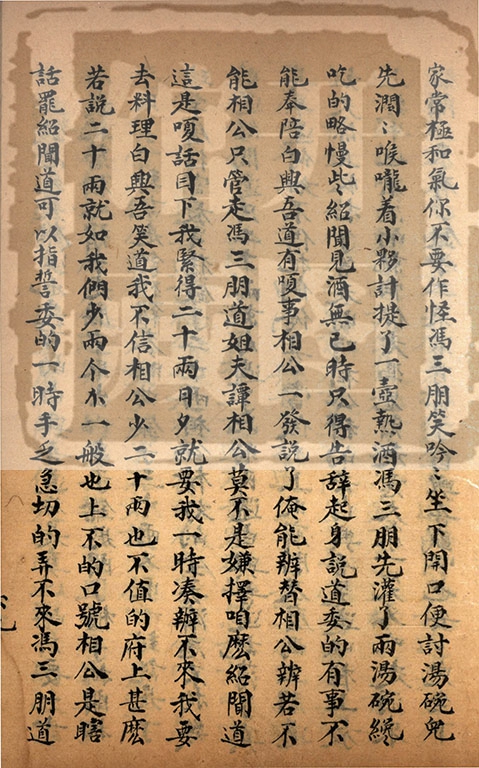 家常極和氣你不要作怪馮三朋笑吟〻坐下開口便討湯碗兒
先潤〻喉嚨着小夥計提了一壺熱酒馮三朋先灌了兩湯碗纔
吃的略慢些紹聞見酒無已時只得告辭起身說道委的有事不
能奉陪白興吾道有嗄事相公一發說了俺能辦替相公辦若不
能相公只管走馮三朋道姐夫譚相公莫不是嫌擇咱麽紹聞道
這是嗄話目下我緊得二十兩日夕就要我一時凑辦不來我要
去料理白興吾笑道我不信相公少二十兩也不值的府上甚麽
若說二十兩就如我們少兩个小一般也上不的口號相公是瞎
話罷紹聞道可以指誓委的一時手乏急切的弄不來馮三朋道